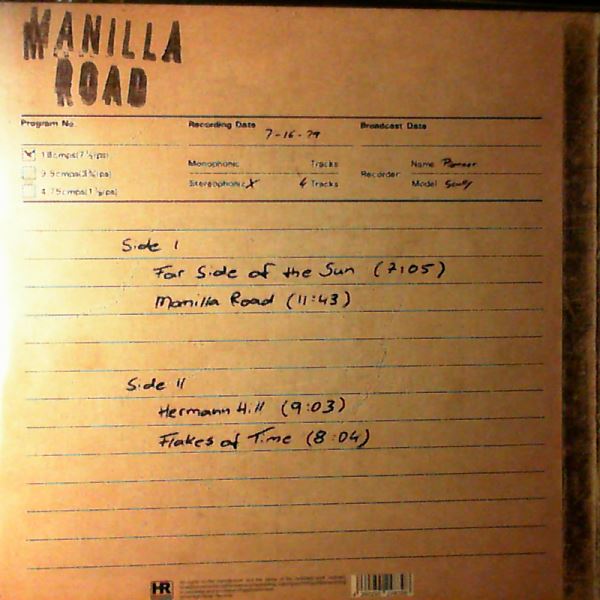 MANILLA
ROAD
Program No. Recording Date 7-16-79 Broadcast Date
18cmps(7½ips) Monophonic Tracks Name Pioneer
9.5cmps(3¾ips) Recorder:
4.75cmps(1⅞ips) Stereophonic X 4 Tracks Model Scully
Side I
Far Side of the Sun (7:05)
Manilla Road (11:43)
Side II
Hermann Hill (9:03)
Flakes of Time (8:04)
HR